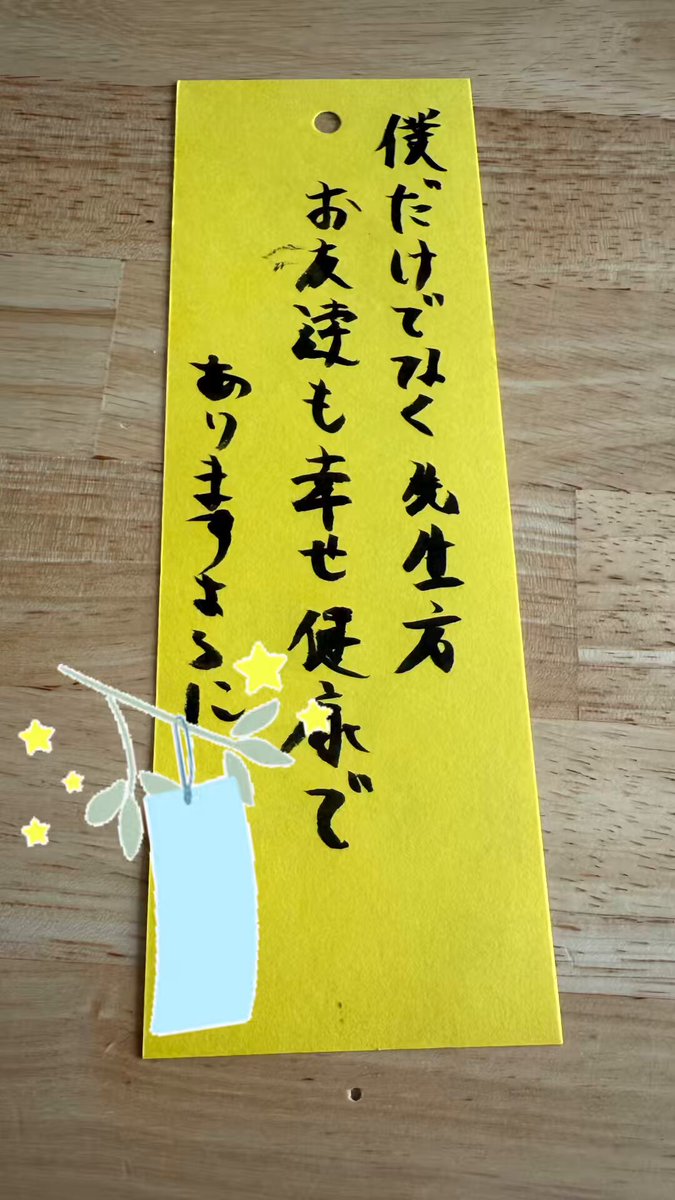 僕だけでなく先生方
お友達も幸せ健康で
ありますように